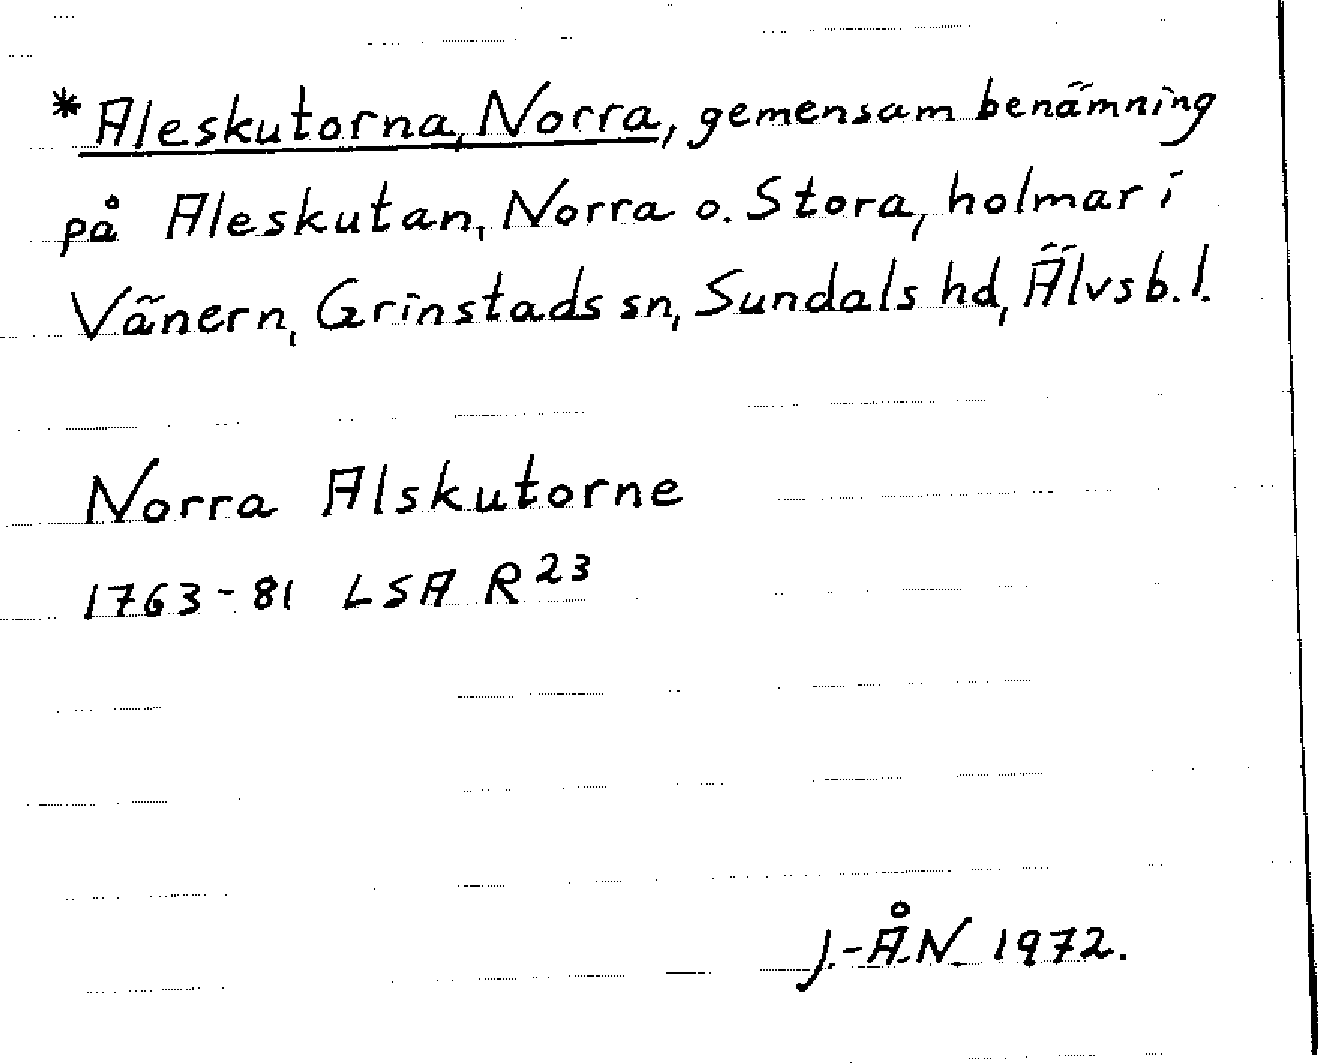 *Aleskutorna, Norra, gemensam benämning
på Aleskutan, Norra o. Stora, holmar i
Vänern, Grinstads sn, Sundals hd, Älvsb. l.
Norra Alskutorne
1763-81 LSA R 23
J.-Å.N. 1972.